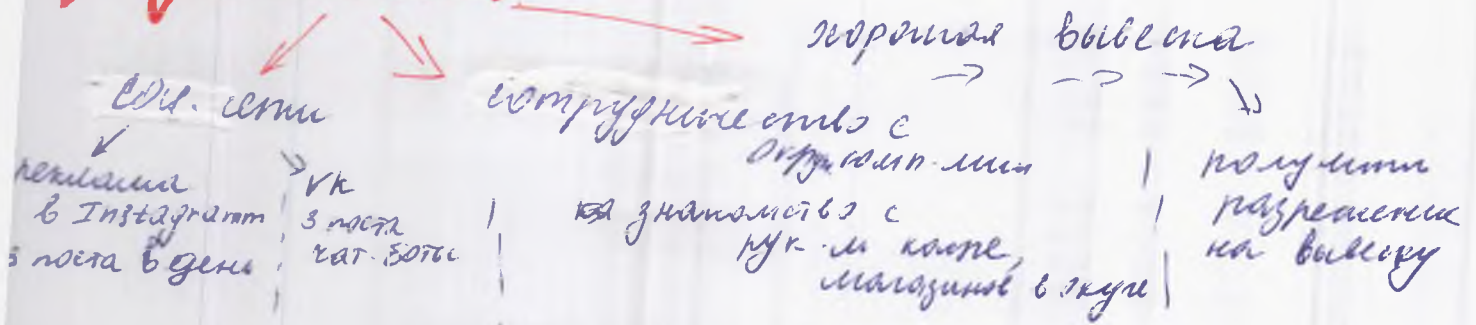 хорошая вывеска
соц. сети
сотрудничество с
друг. комп-ми
реклама
в Instagramm
3 поста в день
VK
3 поста
чат-боты
знакомство с
рук-м кафе,
магазинов в округе
получить
разрешение
на вывеску